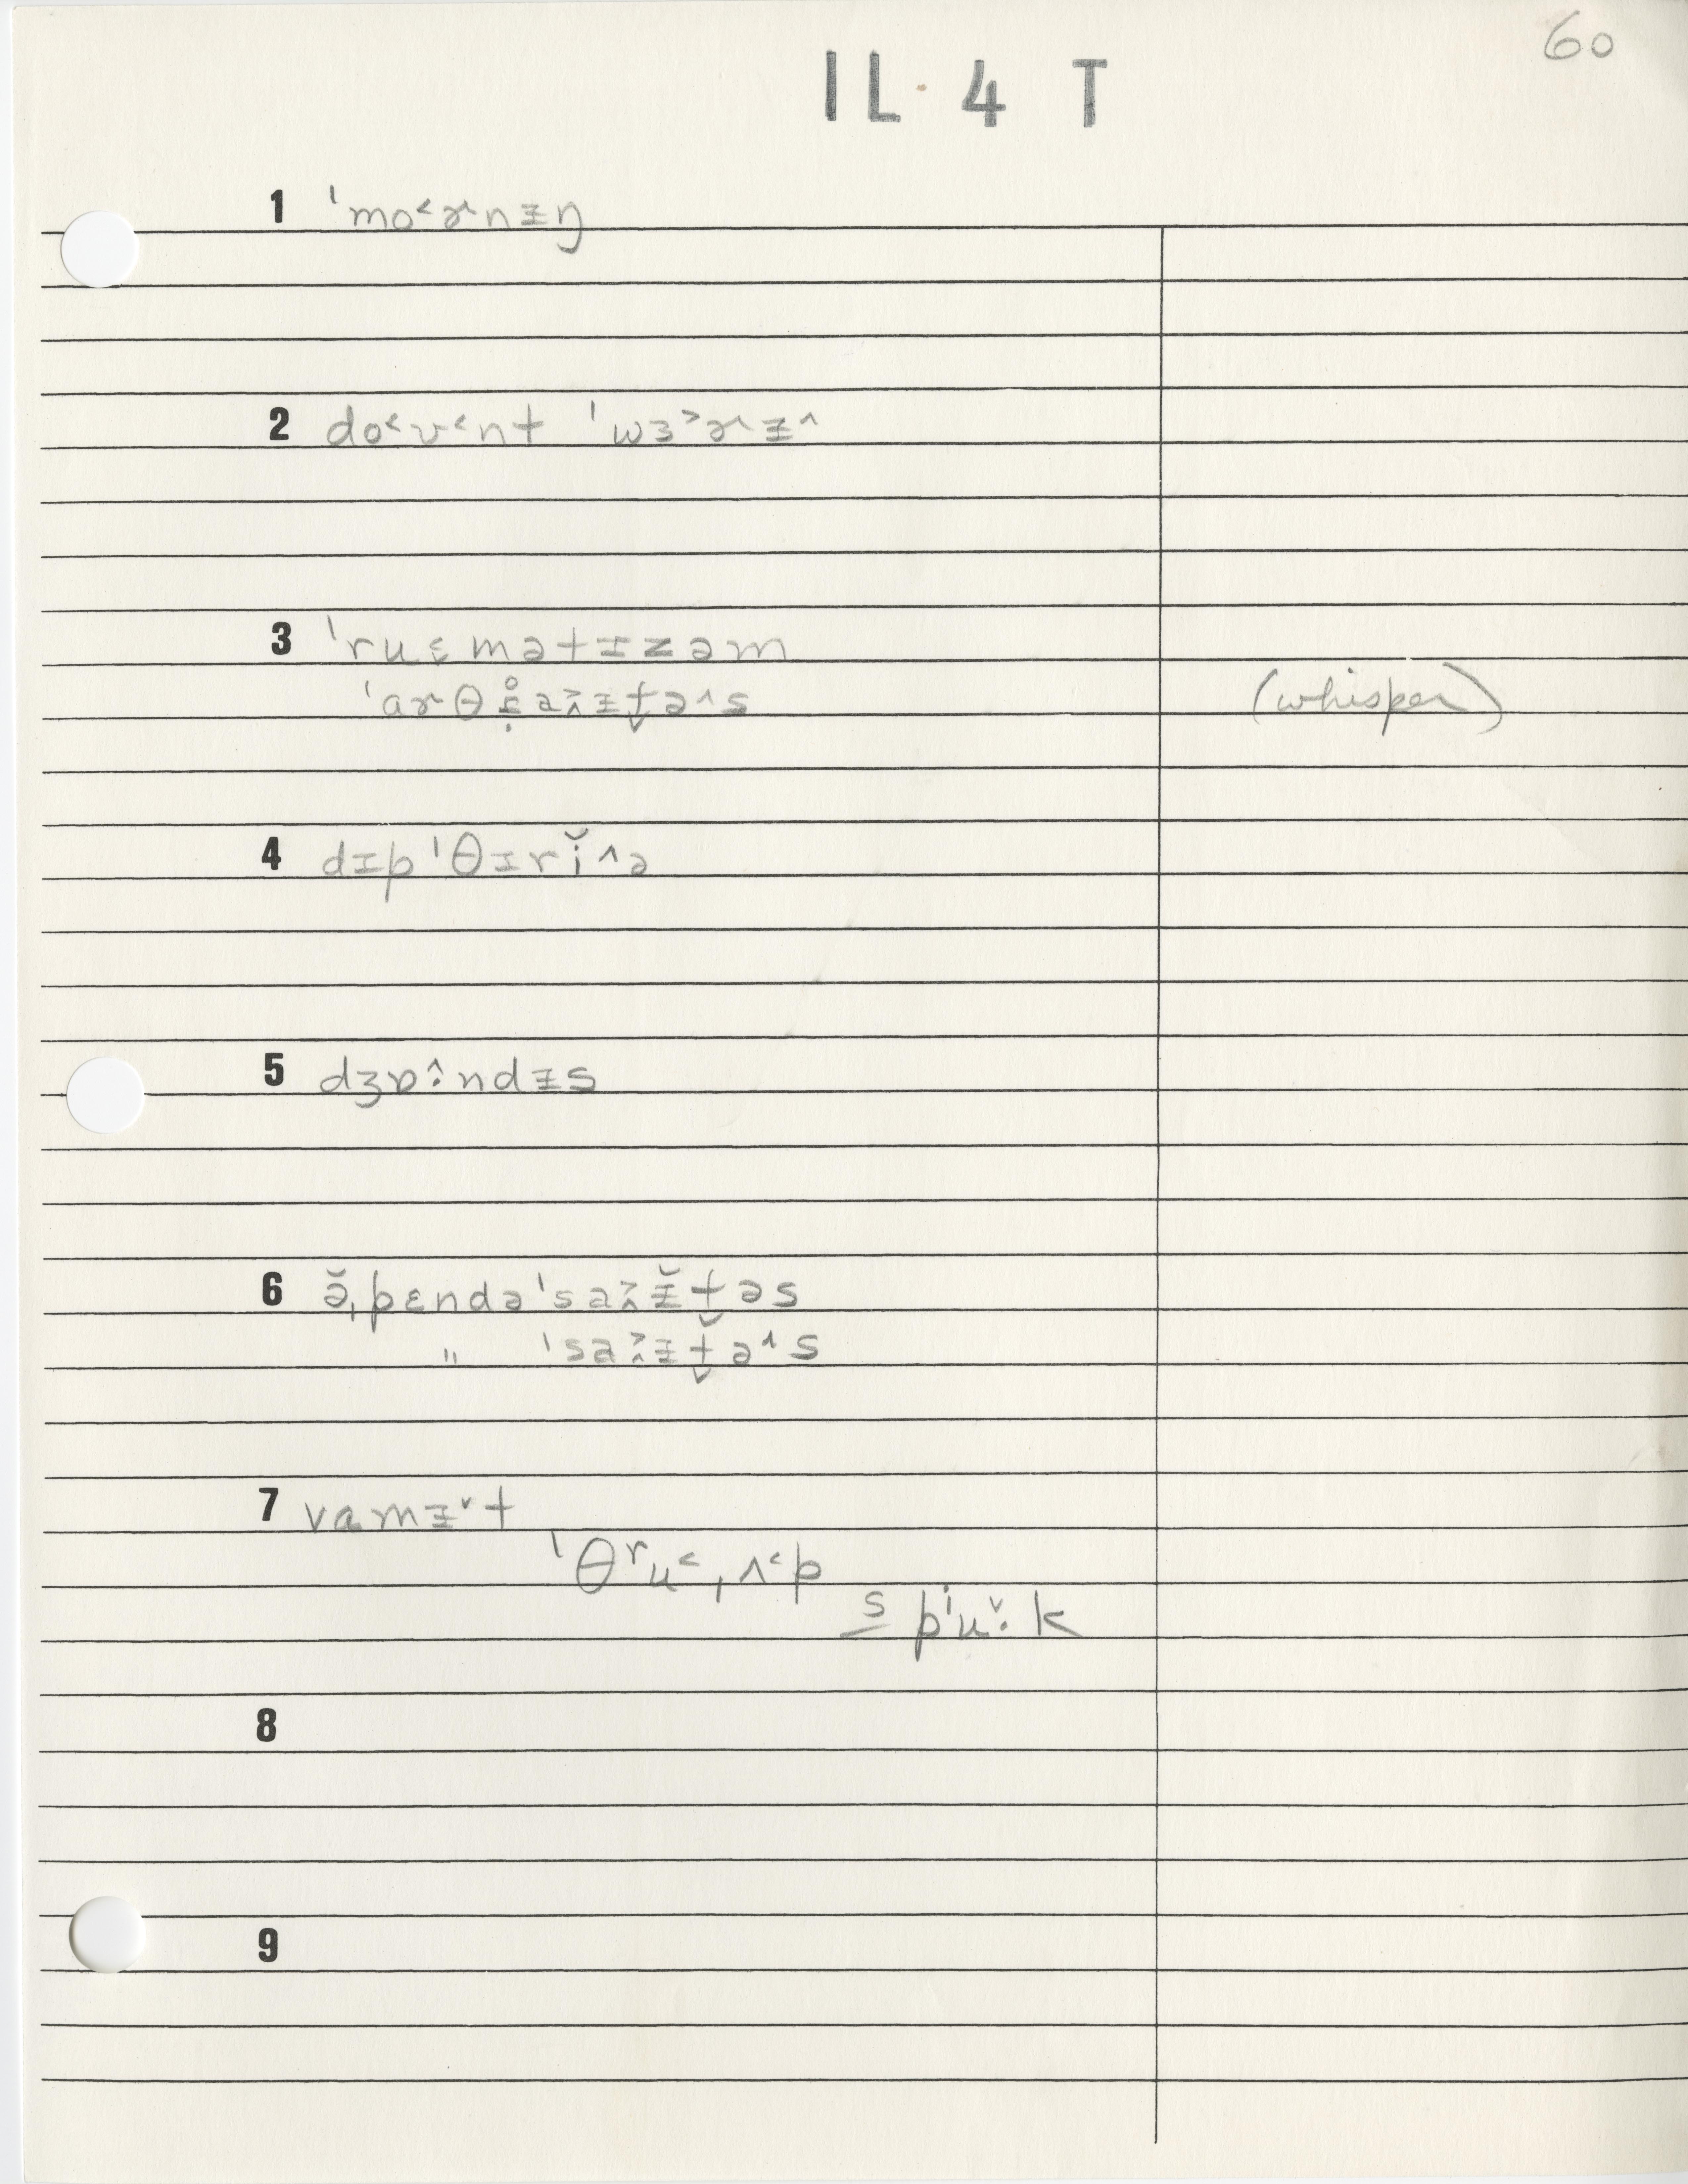 60
IL 4 T
1 ˈmo˂ɚnɨŋ
2 do˂ʊ˂nt ˈwɜ˃ɚɨ˄
3 ˈruɛmətɪzəm
(whisper)
4 dɪpˈθɪrĭ˄ə
5 dʒɒ˄ˑndɨs
6 ə̆ˌpɛndəˈsa˃˄ɨ̆t̬əs
" ˈsa˃˄ɨt̬ə˄s
7 vamɨ˅t
ˈθru˂ˌʌ˂p
s pⁱu˅ˑk
8
9